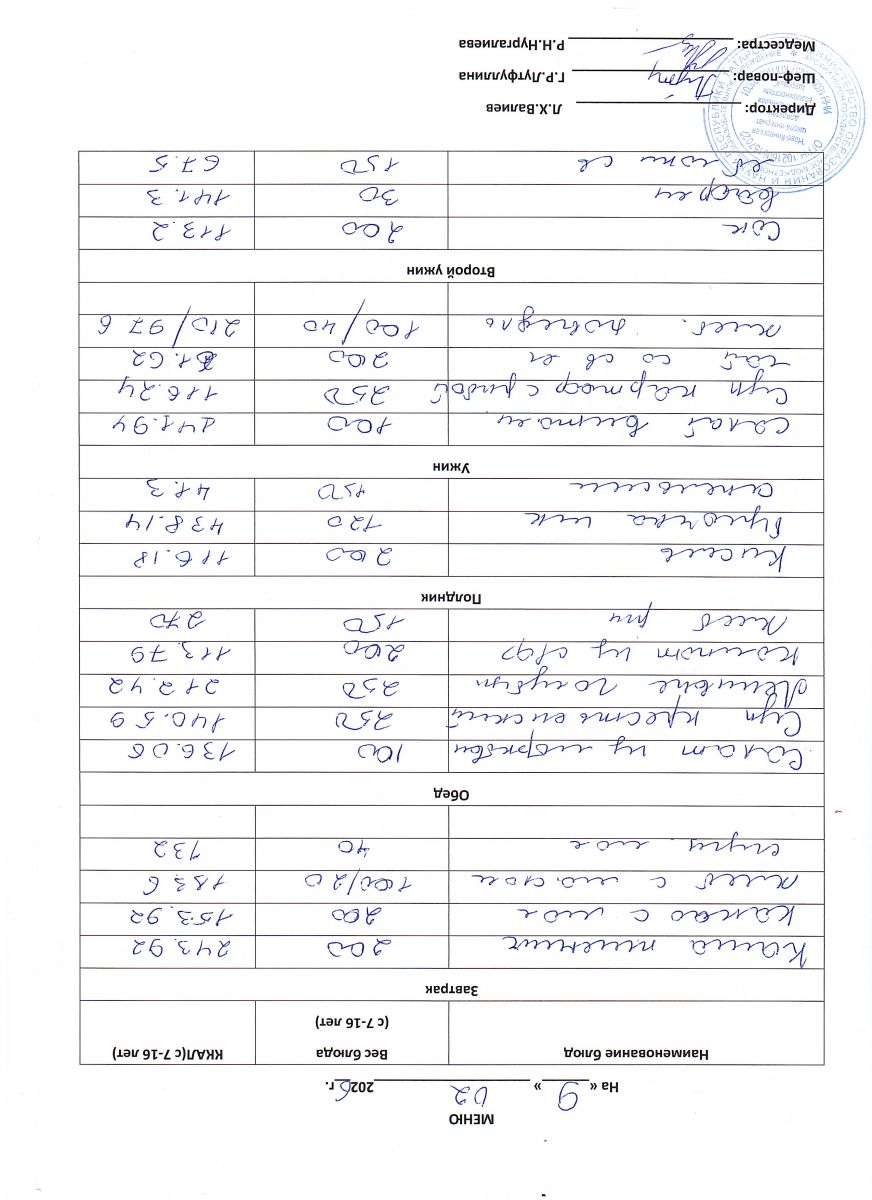 МЕНЮ
На « 9 » 02 2026 г.
Наименование блюд Вес блюда (с 7-16 лет) ККАЛ(с 7-16 лет)
Завтрак
Каша пшенич 200 243.92
Какао с мол 200 153.92
хлеб с 100/20
сгущ. мол 40 132
Обед
Салат из моркови 100 136.06
Суп крестьянский 250 140.59
Ленивые голубцы 250 212.42
Компот из с/ф 200 113.79
Хлеб рж 150 270
Полдник
Кисель 200 116.18
Булочка 120 438.14
апельсин 150 41.3
Ужин
Салат витамин 100 141.94
Суп картоф с рыбой 250 116.24
чай со 200 61.62
хлеб. повидль 100/40 210/97 6
Второй ужин
Сок 200 113.2
вафли 30 141.3
яблоки св 150 67.5
Директор: Л.Х.Валиев
Шеф-повар: Г.Р.Лутфуллина
Медсестра: Р.Н.Нургалиева